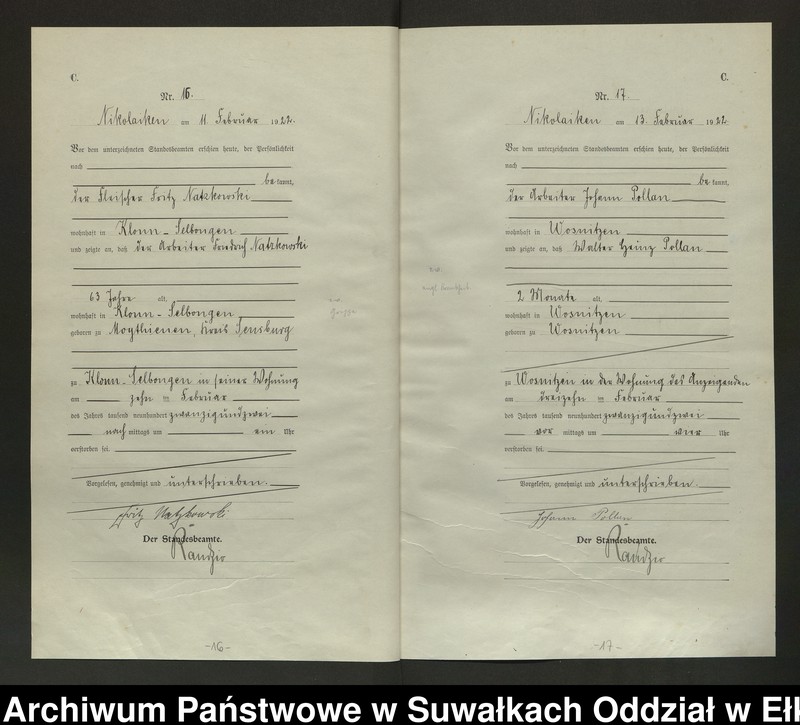 C.
Nr. 16.
Nikolaiken am 11. Februar 1922.
Vor dem unterzeichneten Standesbeamten erschien heute, der Persönlichkeit
nach
be kannt,
der Fleischer Fritz Natzkowski
wohnhaft in Klonn-Selbongen
und zeigte an, daß der Arbeiter Friedrich Natzkowski
63 Jahre alt,
wohnhaft in Klonn-Selbongen
geboren zu Moythienen, Kreis Sensburg
zu Klonn-Selbongen in seiner Wohnung
am zehn ten Februar
des Jahres tausend neunhundert zwanzigundzwei
nach mittags um ein Uhr
verstorben sei.
Vorgelesen, genehmigt und unterschrieben.
Fritz Natzkowski
Der Standesbeamte.
Randzio
-16-
C.
Nr. 17.
Nikolaiken am 13. Februar 1922.
Vor dem unterzeichneten Standesbeamten erschien heute, der Persönlichkeit
nach
be kannt,
der Arbeiter Johann Pollan
wohnhaft in Wosnitzen
und zeigte an, daß Walter Heinz Pollan
2 Monate alt,
wohnhaft in Wosnitzen
geboren zu Wosnitzen
zu Wosnitzen in der Wohnung des Anzeigenden
am dreizehn ten Februar
des Jahres tausend neunhundert zwanzigundzwei
vor mittags um vier Uhr
verstorben sei.
Vorgelesen, genehmigt und unterschrieben.
Johann Pollan
Der Standesbeamte.
Randzio
-17-
Archiwum Państwowe w Suwałkach Oddział w Eł